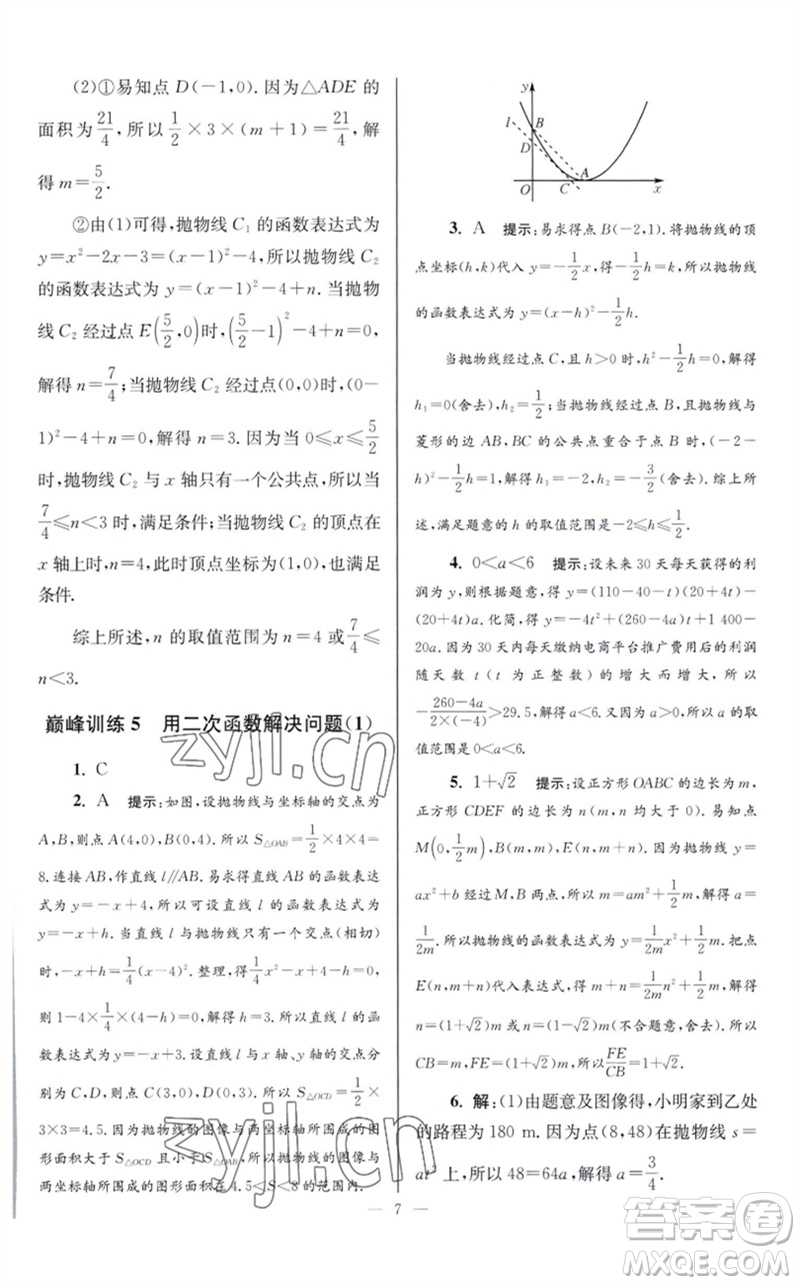 (2)①易知点 D(-1,0).因为△ADE 的
面积为21/4,所以1/2×3×(m+1)=21/4,解
得 m=5/2.
②由(1)可得,抛物线 C₁ 的函数表达式为
y=x²-2x-3=(x-1)²-4,所以抛物线 C₂
的函数表达式为 y=(x-1)²-4+n.当抛物
线 C₂ 经过点 E(5/2,0)时,(5/2-1)²-4+n=0,
解得 n=7/4;当抛物线 C₂ 经过点(0,0)时,(0-
1)²-4+n=0,解得 n=3.因为当 0≤x≤5/2
时,抛物线 C₂ 与 x 轴只有一个公共点,所以当
7/4≤n<3 时,满足条件;当抛物线 C₂ 的顶点在
x 轴上时,n=4,此时顶点坐标为(1,0),也满足
条件.
综上所述,n 的取值范围为 n=4 或7/4≤
n<3.
巅峰训练 5 用二次函数解决问题(1)
1. C
2. A 提示:如图,设抛物线与坐标轴的交点为
A,B,则点 A(4,0),B(0,4).所以 S△OAB=1/2×4×4=
8.连接 AB,作直线 l∥AB.易求得直线 AB 的函数表达式
为 y=-x+4,所以可设直线 l 的函数表达式为
y=-x+h.当直线 l 与抛物线只有一个交点(相切)
时,-x+h=1/4(x-4)².整理,得1/4x²-x+4-h=0,
则 1-4×1/4×(4-h)=0,解得 h=3.所以直线 l 的函
数表达式为 y=-x+3.设直线 l 与x、y轴的交点分
别为 C,D,则点 C(3,0),D(0,3).所以 S△OCD=1/2×
3×3=4.5.因为抛物线的图像与两坐标轴所围成的图
形面积大于 S△OCD 且小于 S△OAB,所以抛物线的图像与
两坐标轴所围成的图形面积在 4.5<S<8 的范围内.
y
l
B
D
O
C
A
x
3. A 提示:易求得点 B(-2,1).将抛物线的顶
点坐标(h,k)代入 y=-1/2x,得-1/2h=k,所以抛物线
的函数表达式为 y=(x-h)²-1/2h.
当抛物线经过点 C,且 h>0 时,h²-1/2h=0,解得
h₁=0(舍去),h₂=1/2;当抛物线经过抛物线与
菱形的边 AB,BC 的公共点重合于点 B 时,(-2-
h)²-1/2h=1,解得 h₁=-2,h₂=-3/2(舍去).综上所
述,满足题意的 h 的取值范围是-2≤h≤1/2.
4. 0<a<6 提示:设未来 30 天每天获得的利
润为 y,则根据题意,得 y=(110-40-t)(20+4t)-
(20+4t)a.化简,得 y=-4t²+(260-4a)t+1 400-
20a.因为 30 天内每天缴纳电商平台推广费用后的利润
随天数 t(t 为正整数)的增大而增大,所以
-(260-4a)/(2×(-4))>29.5,解得 a<6.又因为 a>0,所以 a 的取
值范围是 0<a<6.
5. 1+√2 提示:设正方形 OABC 的边长为 m,
正方形 CDEF 的边长为 n(m,n 均大于 0).易知点
M(0,1/2m),B(m,m),E(n,m+n).因为抛物线 y=
ax²+b 经过 M,B 两点,所以 m=am²+1/2m,解得 a=
1/2m.所以抛物线的函数表达式为 y=1/2m x²+1/2m.把点
E(n,m+n)代入表达式,得 m+n=1/2m n²+1/2m,解得
n=(1+√2)m 或 n=(1-√2)m(不合题意,舍去).所以
CB=m,FE=(1+√2)m.所以FE/CB=1+√2.
6. 解:(1)由题意及图像得,小明家到乙处
的路程为 180 m.因为点(8,48)在抛物线 s=
at² 上,所以 48=64a,解得 a=3/4.
7
zyjl.cn
zyjl.cn
答案圈
MXQE.COM